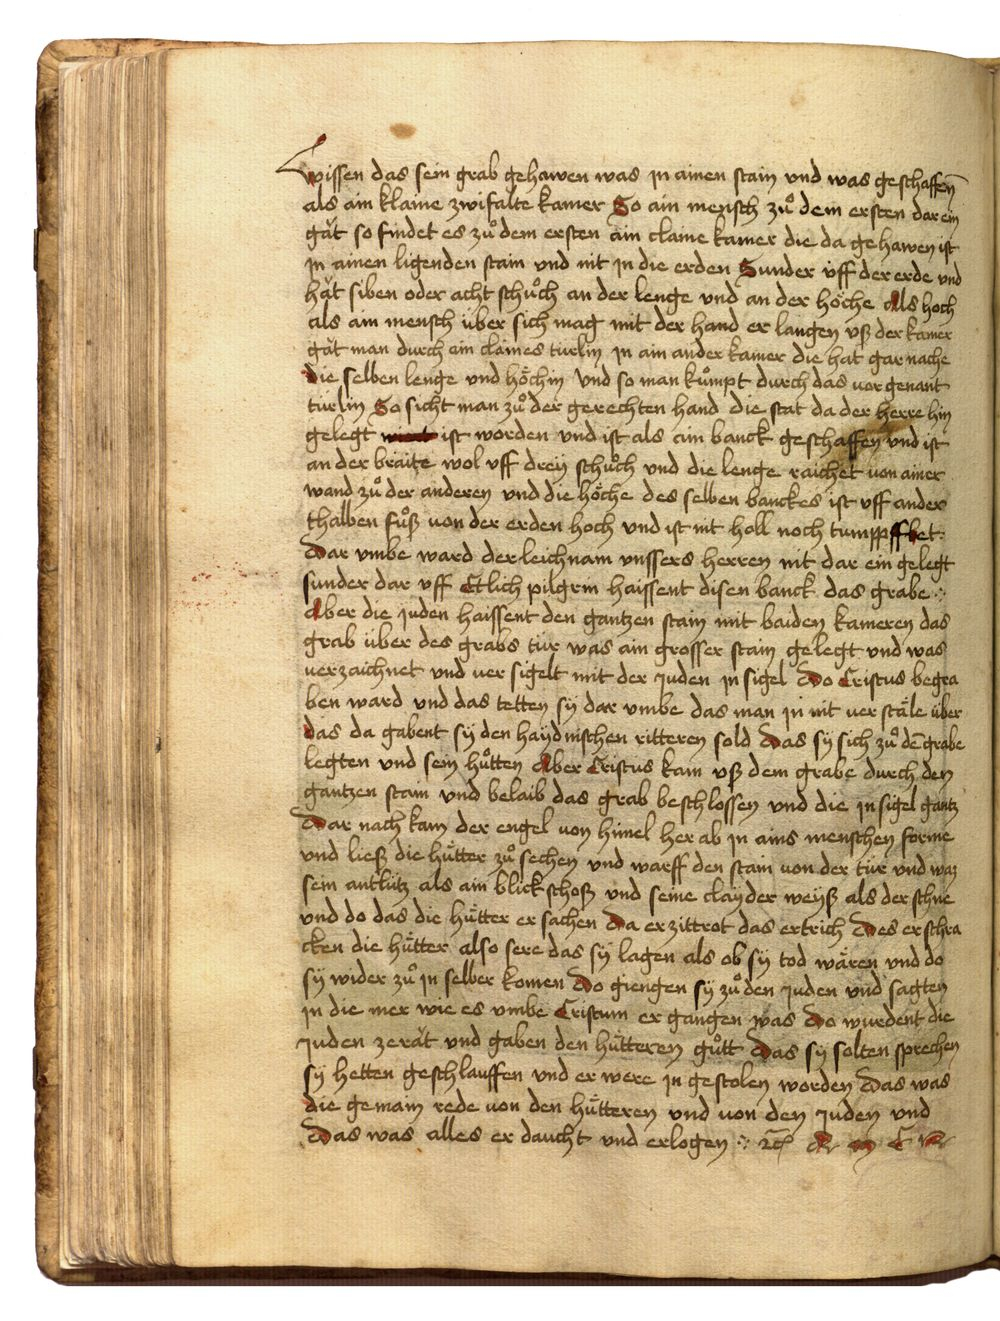 wissen das sein grab gehawen was jn ainen stain vnd was geschaffen̄
als ain klaine zwifalte kamer So ain mensch zuͦ dem ersten dar ein
găt so findet es zuͦ dem ersten ain claine kamer die da gehawen ist
jn ainen ligenden stain vnd nit jn die erden Sunder vff der erde vnd
hăt siben oder acht schuͦch an der lenge vnd an der höche Als hoch
als ain mensch über sich mag mit der hand er langen vß der kamer
găt man durch ein claines türlin jn ain ander kamer die hat gar nache
die selben lenge vnd höchin vnd so man kuͦmpt durch das vorgenant
türlin So sicht man zuͦ der gerechten hand die stat da der herre hin
gelegt ist worden vnd ist als ain banck geschaffen vnd ist
an der braite wol vff dreÿ schuͦch vnd die lenge raichet von ainer
wand zuͦ der anderen vnd die höche des selben banckes ist vff ander
thalben fuͦß von der erden hoch vnd ist nit holl noch tumppffhet
Dar vmbe ward der leichnam vnssers herren nit dar ein gelegt
sunder dar vff Etlich pilgrin haissent disen banck das grabe
Aber die juden haissent den gantzen stain mit baiden kameren das
grab über des grabs tür was ain grosser stain gelegt vnd was
verzaichnet vnd ver sigelt mit der juden jn sigel Do Cristus begra
ben ward vnd das tetten sÿ dar vmbe das man jn nit ver stäle über
das da gabent sÿ den haÿdnischen ritteren sold Das sÿ sich zuͦ dē grabe
legten vnd sein huͦtten Aber Cristus kam vß dem grabe durch den
gantzen stain vnd belaib das grab beschlossen vnd die jn sigel gantz
Dar nach kam der engel von himel her ab jn ains menschen forme
vnd ließ die hütter zuͦ sechen vnd warff den stain von der tür vnd waz
sein antlütz als ain blick schoß vnd seine claÿder weÿß als der schne
vnd do das die hütter er sachen Da er zittrot das ertrich Des er schra
cken die hütter also sere das sÿ lagen als ob sÿ tod wären vnd do
sÿ wider zuͦ jn selber komen Do giengen sÿ zuͦ den juden vnd sagten
jn die mer wie es vmbe Cristum er gangen was Do wurdent die
juden ze răt vnd gaben den hütteren guͦtt Das sÿ solten sprechen
sÿ hetten geschlauffen vnd er were jn gestolen worden Das was
die gemain rede von den hütteren vnd von den juden vnd
Das was alles er daucht vnd erlogen